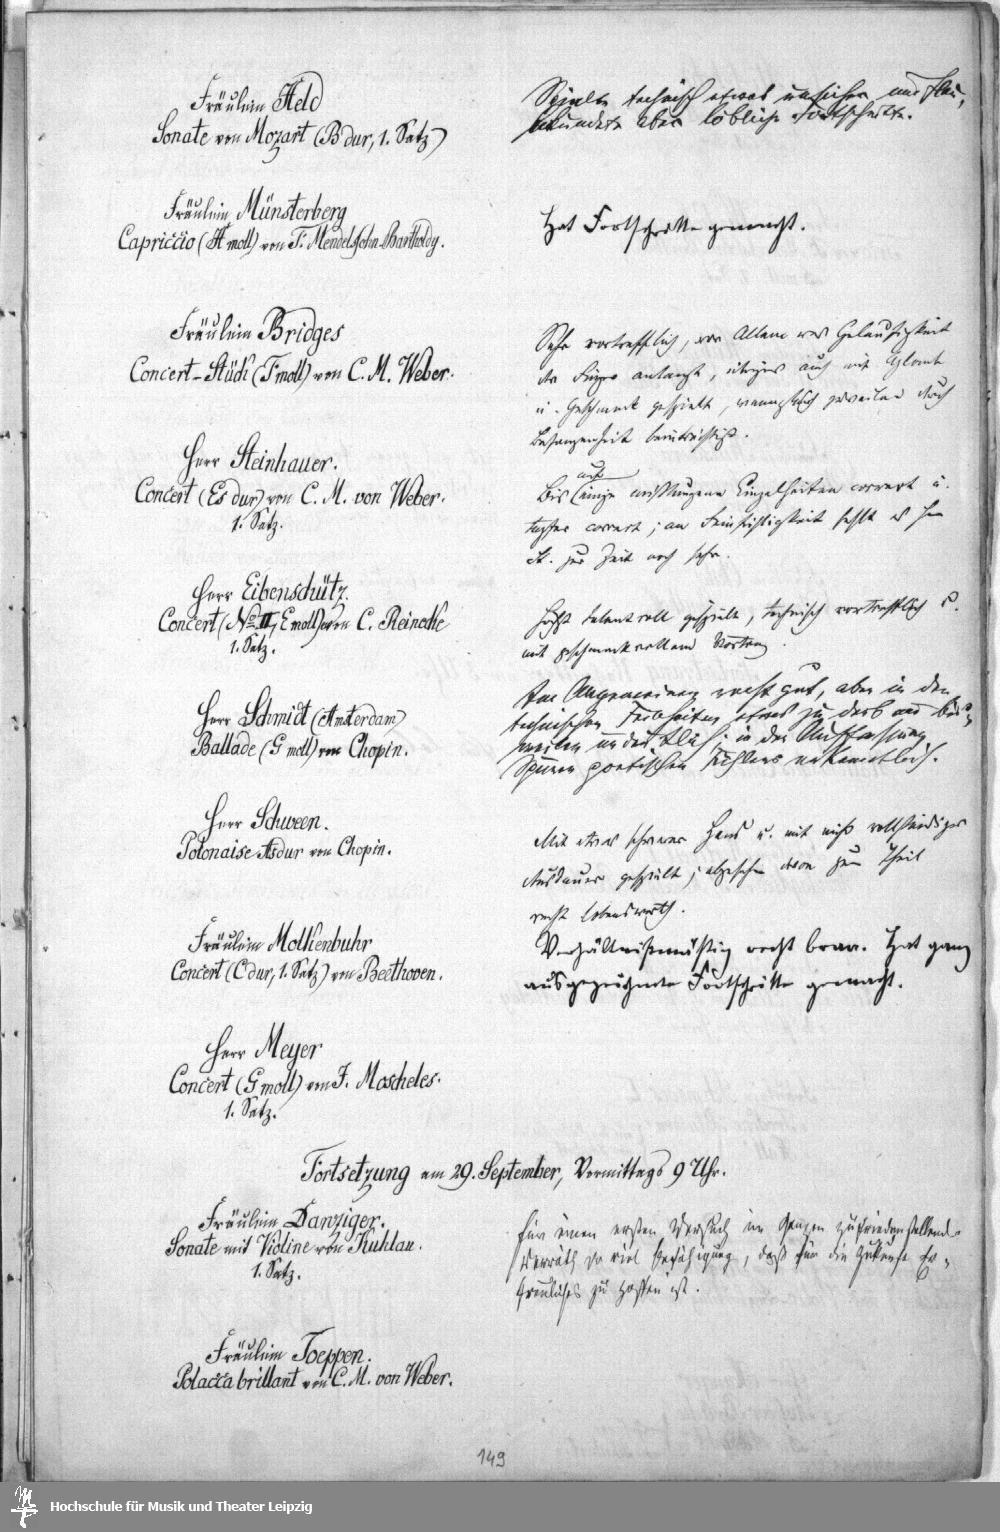 Fräulein Held
Sonate von Mozart (B dur, 1. Satz)
Spielte technisch etwas unsicher und
bekundete aber löbliche Fortschritte.
Fräulein Münsterberg
Capriccio (A moll) von F. Mendelssohn-Bartholdy.
Hat Fortschritte gemacht.
Fräulein Bridges
Concert-Stück (F moll) von C. M. Weber.
Sehr vortrefflich, vor Allem was Geläufigkeit
der Finger anlangt, übrigens auch mit
u. Geschmack gespielt, zuweilen durch
Befangenheit beeinträchtigt.
Herr Steinhauer.
Concert (Es dur) von C. M. von Weber.
1. Satz.
auf
Bis einige mißlungene Einzelheiten correct u.
tapfer correct; an Feinfühligkeit fehlt es
zur Zeit noch sehr.
Herr Eibenschütz.
Concert (No. II, E moll) von C. Reinecke
1. Satz.
Höchst talentvoll gespielt, technisch vortrefflich u.
mit geschmackvollem Vortrag.
Herr Schmidt (Amsterdam)
Ballade (G moll) von Chopin.
Im Allgemeinen recht gut, aber in den
technischen etwas zu derb und bis-
weilen undeutlich; in der Auffassung
Spuren poetischen Fühlens erkenntlich.
Herr Schween.
Polonaise As dur von Chopin.
Mit etwas schwerer Hand u. mit nicht vollständiger
Ausdauer gespielt; abgesehen davon zum Theil
recht lobenswerth.
Fräulein Molkenbuhr
Concert (C dur, 1. Satz) von Beethoven.
Verhältnißmäßig recht brav. Hat ganz
ausgezeichnete Fortschritte gemacht.
Herr Meyer
Concert (G moll) von J. Moscheles.
1. Satz.
Fortsetzung am 29. September, Vormittags 9 Uhr.
Fräulein Danziger.
Sonate mit Violine von Kuhlau.
1. Satz.
Für einen ersten Versuch im Ganzen zufriedenstellend.
Verräth so viel Befähigung, daß für die Zukunft Er-
freuliches zu hoffen ist.
Fräulein Toeppen.
Polacca brillant von C. M. von Weber.
149
Hochschule für Musik und Theater Leipzig